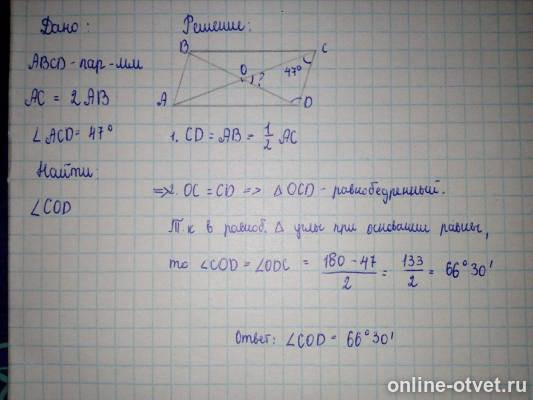 Дано:
ABCD - пар-мм
AC = 2AB
∠ACD = 47°
Найти:
∠COD
Решение:
B
C
O
1?
47°
A
D
1. CD = AB = 1/2 AC
=> 2. OC = CD => △ OCD - равнобедренный.
Т.к в равноб. △ углы при основании равны,
то ∠COD = ∠ODC = (180-47)/2 = 133/2 = 66°30'
Ответ: ∠COD = 66°30'
online-otvet.ru